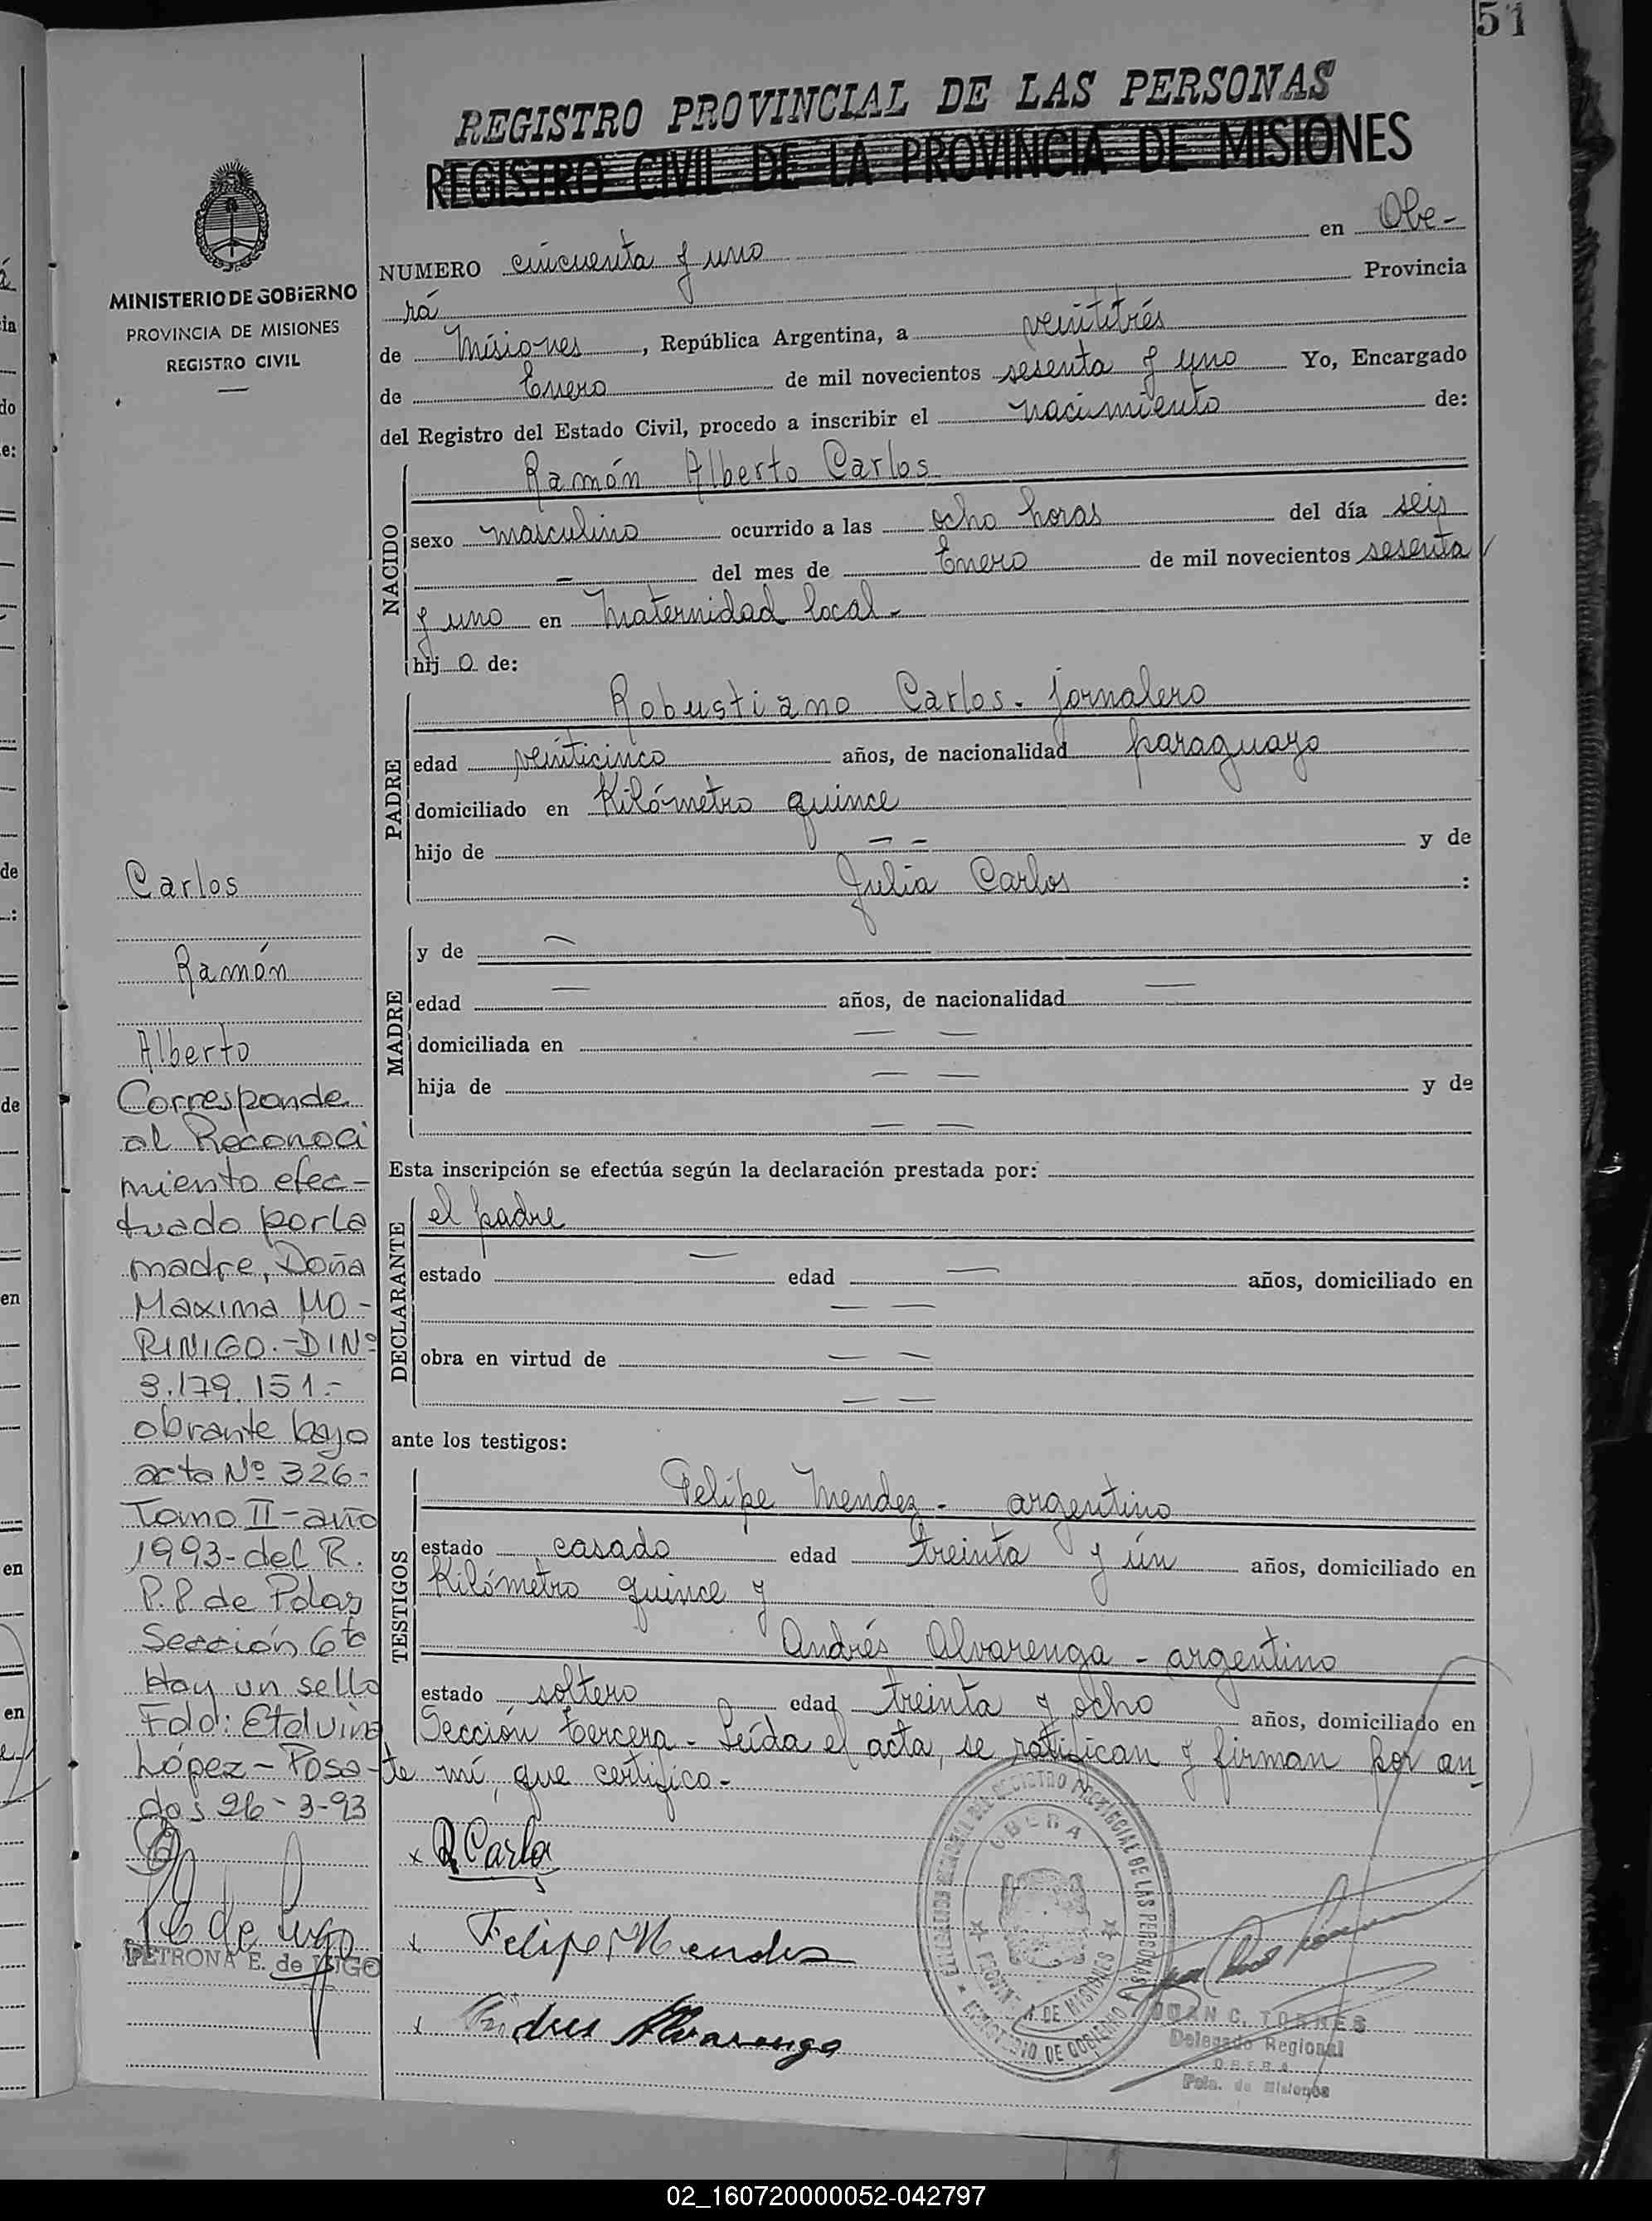 51
REGISTRO PROVINCIAL DE LAS PERSONAS
REGISTRO CIVIL DE LA PROVINCIA DE MISIONES
MINISTERIO DE GOBIERNO
PROVINCIA DE MISIONES
REGISTRO CIVIL
NUMERO cincuenta y uno en Obe-
rá Provincia
de Misiones, República Argentina, a veintitrés
de Enero de mil novecientos sesenta y uno Yo, Encargado
del Registro del Estado Civil, procedo a inscribir el nacimiento de:
NACIDO
Ramón Alberto Carlos
sexo masculino ocurrido a las ocho horas del día seis
- del mes de Enero de mil novecientos sesenta
y uno en Maternidad local.-
hij o de:
PADRE
Robustiano Carlos. jornalero
edad veinticinco años, de nacionalidad paraguayo
domiciliado en Kilómetro quince
hijo de — — y de
Julia Carlos :
MADRE
y de —
edad — años, de nacionalidad —
domiciliada en — —
hija de — — y de
— —
Esta inscripción se efectúa según la declaración prestada por:
DECLARANTE
el padre
estado — edad — años, domiciliado en
— —
obra en virtud de — —
— —
ante los testigos:
TESTIGOS
Felipe Mendez - argentino
estado casado edad treinta y ún años, domiciliado en
Kilómetro quince y
Andrés Alvarenga - argentino
estado soltero edad treinta y ocho años, domiciliado en
Sección tercera - Leída el acta, se ratifican y firman por an-
te mí, que certifico.-
x R Carlos
x Felipe Mendes
x Andres Alvarenga
DELEGACION REGIONAL DEL REGISTRO PROVINCIAL DE LAS PERSONAS
OBERA
PROVINCIA DE MISIONES
MINISTERIO DE GOBIERNO
JUAN C. TORRES
Delegado Regional
OBERA
Pcia. de Misiones
Carlos
Ramón
Alberto
Corresponde
al Reconoci
miento efec-
tuado por la
madre, Doña
Maxima MO-
RINIGO.-DI Nº
3.179.151.-
obrante bajo
acta Nº 326-
Tomo II-año
1993-del R.
P.P de Pdas
Sección 6ta
Hay un sello
Fdo: Etelvina
López - Posa-
das 26-3-93
PETRONA E. de LUGO
02_160720000052-042797